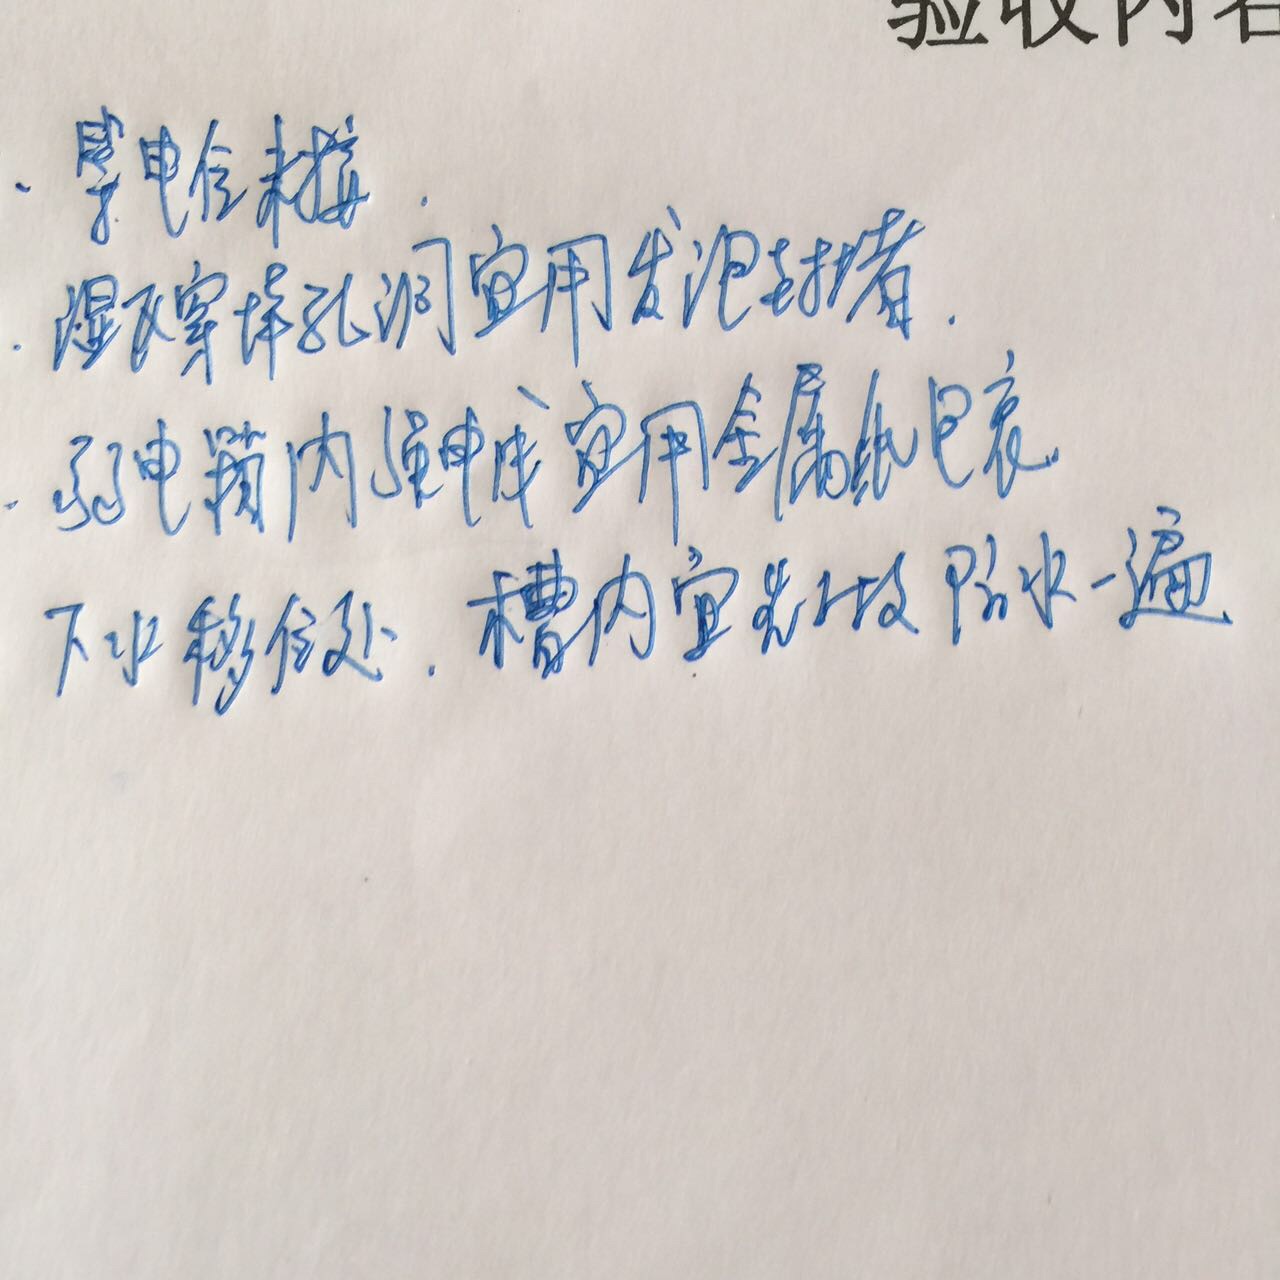 验收内容
· 等电位未接.
· 湿区穿孔洞宜用发泡封堵.
· 弱电箱内强电宜用金属纸包裹.
下水移位处.槽内宜先做防水一遍